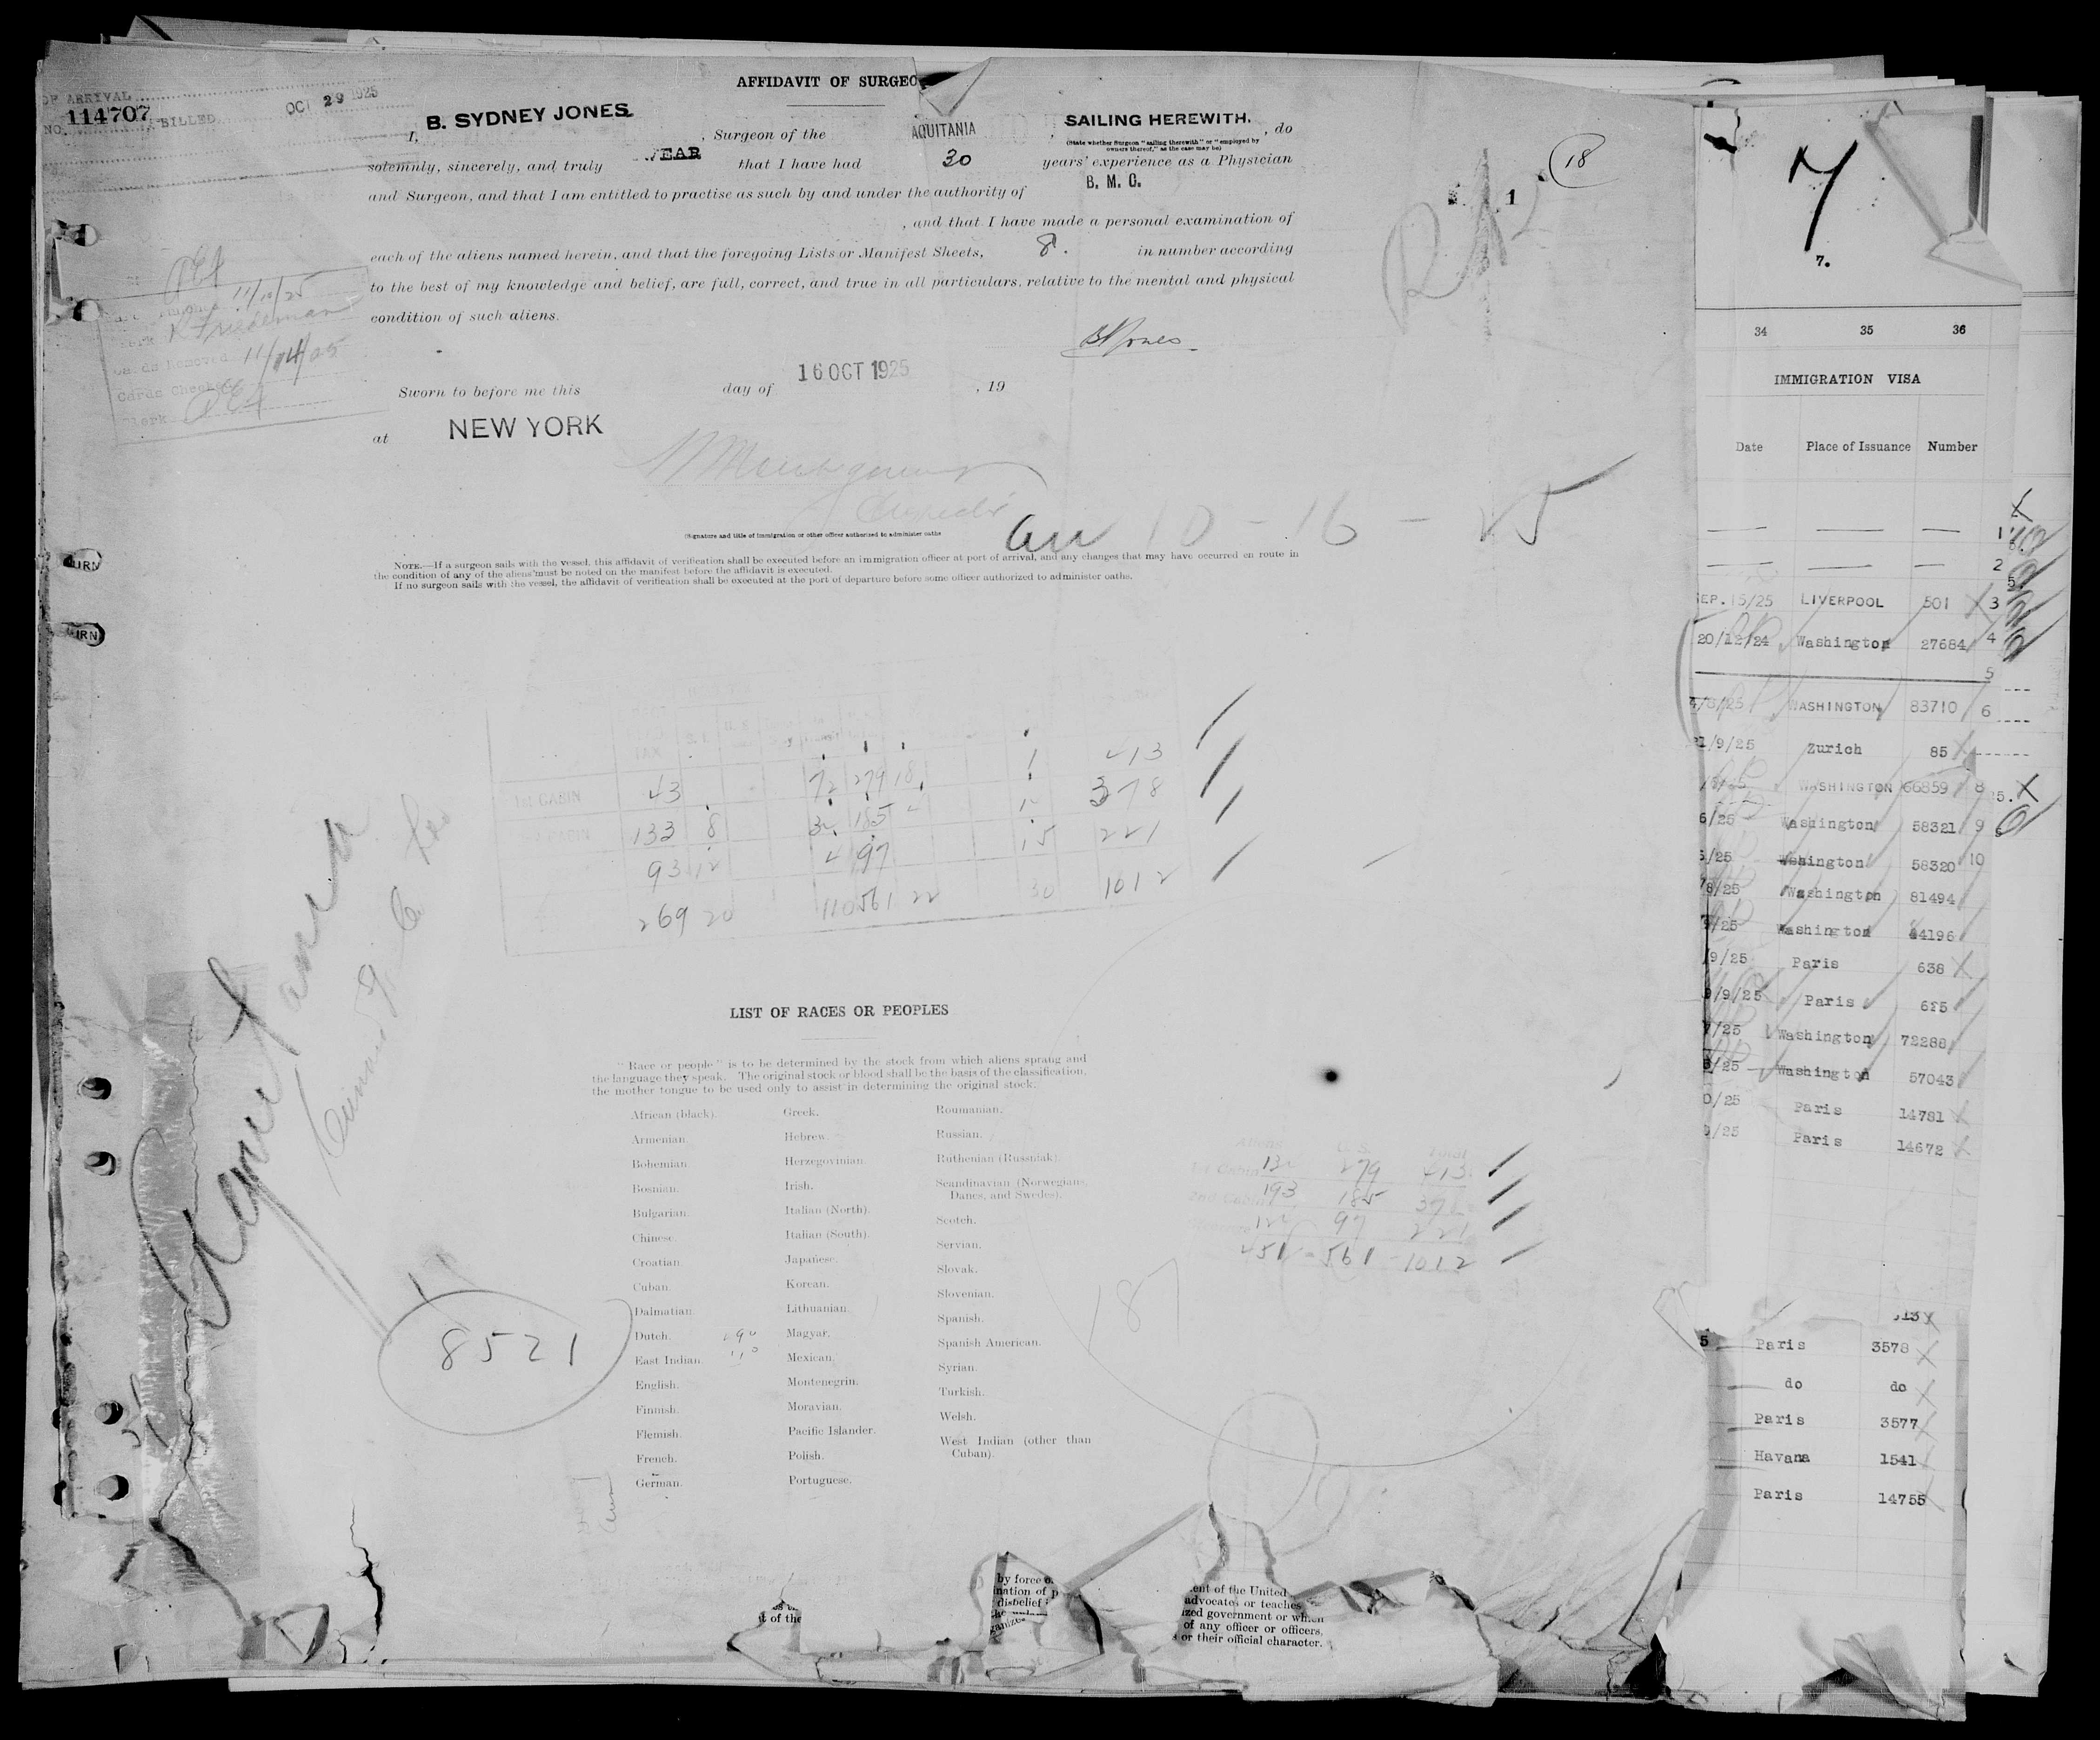 AFFIDAVIT OF SURGEO
OF ARRIVAL
NO. 114707 BILLED OCT 29 1925
I, B. SYDNEY JONES. , Surgeon of the AQUITANIA , SAILING HEREWITH. , do
(State whether Surgeon "sailing therewith" or "employed by
owners thereof," as the case may be)
solemnly, sincerely, and truly that I have had 30 years' experience as a Physician
and Surgeon, and that I am entitled to practise as such by and under the authority of B. M. C.
, and that I have made a personal examination of
each of the aliens named herein, and that the foregoing Lists or Manifest Sheets, 8. in number according
to the best of my knowledge and belief, are full, correct, and true in all particulars, relative to the mental and physical
condition of such aliens.
18
1
11/12/25
K Friedeman
Cards Removed 11/14/25
Cards Checked
Clerk
BSJones
Sworn to before me this day of 16 OCT 1925 , 19
at NEW YORK
10 - 16 - 25
(Signature and title of immigration or other officer authorized to administer oaths
NOTE.—If a surgeon sails with the vessel, this affidavit of verification shall be executed before an immigration officer at port of arrival, and any changes that may have occurred en route in
the condition of any of the aliens must be noted on the manifest before the affidavit is executed.
If no surgeon sails with the vessel, the affidavit of verification shall be executed at the port of departure before some officer authorized to administer oaths.
1st CABIN 43 72 279 18 1 413
CABIN 133 8 32 185 378
93 12 97 15 221
269 20 110 561 22 30 1012
Aquitania
8521
LIST OF RACES OR PEOPLES
"Race or people" is to be determined by the stock from which aliens sprang and
the language they speak. The original stock or blood shall be the basis of the classification,
the mother tongue to be used only to assist in determining the original stock.
African (black).
Armenian.
Bohemian.
Bosnian.
Bulgarian.
Chinese.
Croatian.
Cuban.
Dalmatian.
Dutch.
East Indian.
English.
Finnish.
Flemish.
French.
German.
Greek.
Hebrew.
Herzegovinian.
Irish.
Italian (North).
Italian (South).
Japanese.
Korean.
Lithuanian.
Magyar.
Mexican.
Montenegrin.
Moravian.
Pacific Islander.
Polish.
Portuguese.
Roumanian.
Russian.
Ruthenian (Russniak).
Scandinavian (Norwegians,
Danes, and Swedes).
Scotch.
Servian.
Slovak.
Slovenian.
Spanish.
Spanish American.
Syrian.
Turkish.
Welsh.
West Indian (other than
Cuban).
Aliens U.S. Total
1st Cabin 279 413
2nd Cabin 193 185 378
97 221
451 - 561 - 1012
187
by force o
ination of p
disbelief
t of the
ent of the United
advocates or teaches
ized government or which
of any officer or officers,
or their official character.
7
7.
34 35 36
IMMIGRATION VISA
Date Place of Issuance Number
1
2
SEP. 15/25 LIVERPOOL 501 3
20/12/24 Washington 27684 4
5
4/8/25 WASHINGTON 83710 6
21/9/25 Zurich 85
WASHINGTON 66859 8
6/25 Washington 58321 9
5/25 Washington 58320 10
8/25 Washington 81494
/25 Washington 44196
/9/25 Paris 638
9/9/25 Paris 625
7/25 Washington 72288
8/25 Washington 57043
0/25 Paris 14781
9/25 Paris 14672
5 Paris 3578
do do
Paris 3577
Havana 1541
Paris 14755